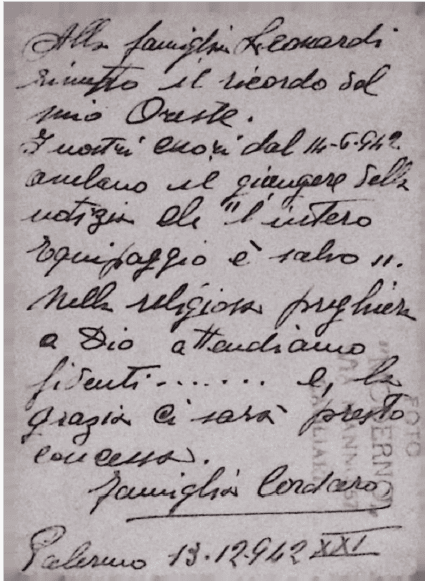 Alla famiglia Leonardi
rimetto il ricordo del
mio Oreste.
I nostri cuori dal 14-6-942
anelano il giungere della
notizia che "l'intero
equipaggio è salvo".
Nella religiosa preghiera
a Dio attendiamo
fidenti....... e, la
grazia ci sarà presto
concessa.
Famiglia Cordaro
Palermo 13-12-942 XXI
FOTO